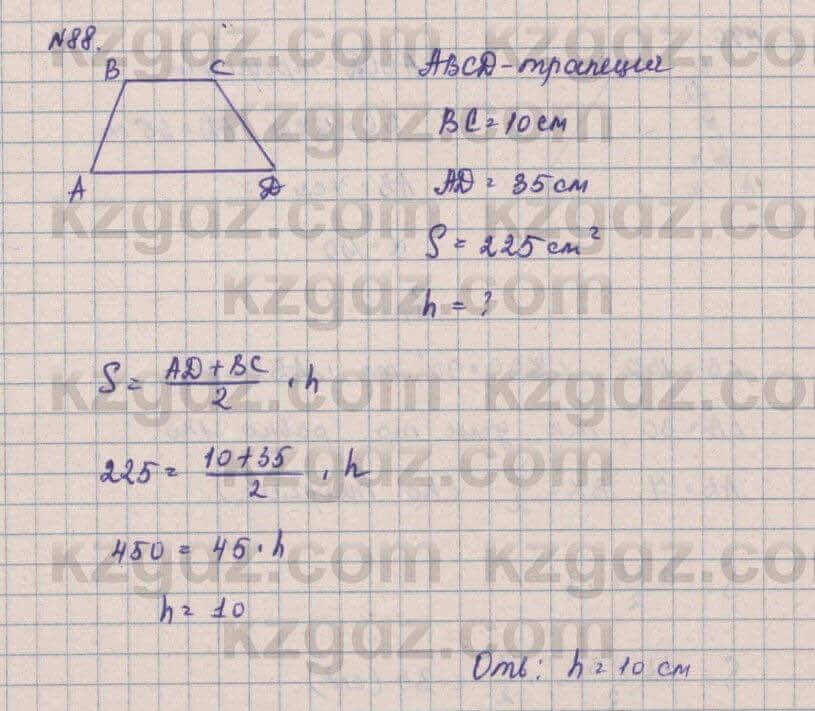 №88.
B C
A D
ABCD-трапеция
BC = 10 см
AD = 35 см
S = 225 см²
h = ?
S = (AD + BC)/2 · h
225 = (10+35)/2 · h
450 = 45 · h
h = 10
Отв: h = 10 см
kzgdz.com kzgdz.com
kzgdz.com
kzgdz.com kzgdz.com
kzgdz.com
kzgdz.com kzgdz.com
kzgdz.com
kzgdz.com kzgdz.com
kzgdz.com